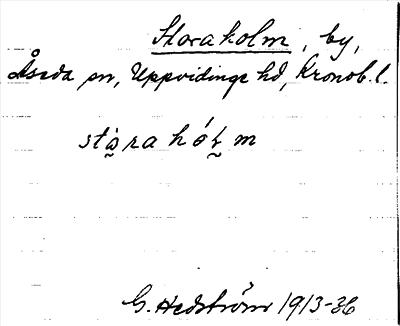 Storaholm, by,
Åseda sn, Uppvidinge hd, Kronob. l.
stọ̀rahóḷm
G. Hedström 1913-36